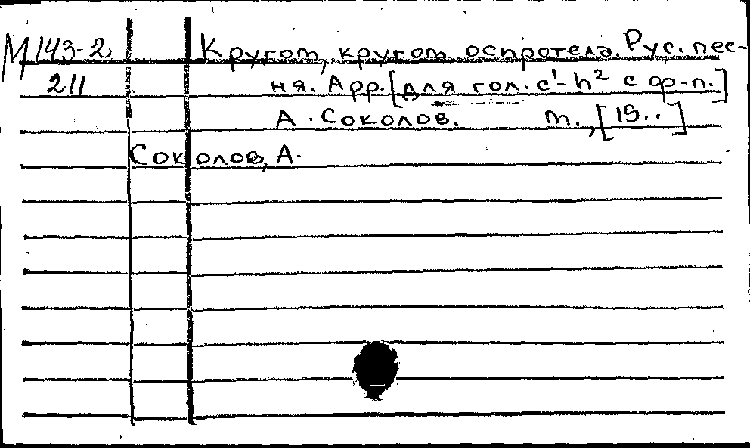 М 143-2 Кругом, кругом осиротела. Рус. пес-
211 ня. Арр. [для гол. c¹-h² с ф-п.]
А. Соколов. М., [19..]
Соколов, А.